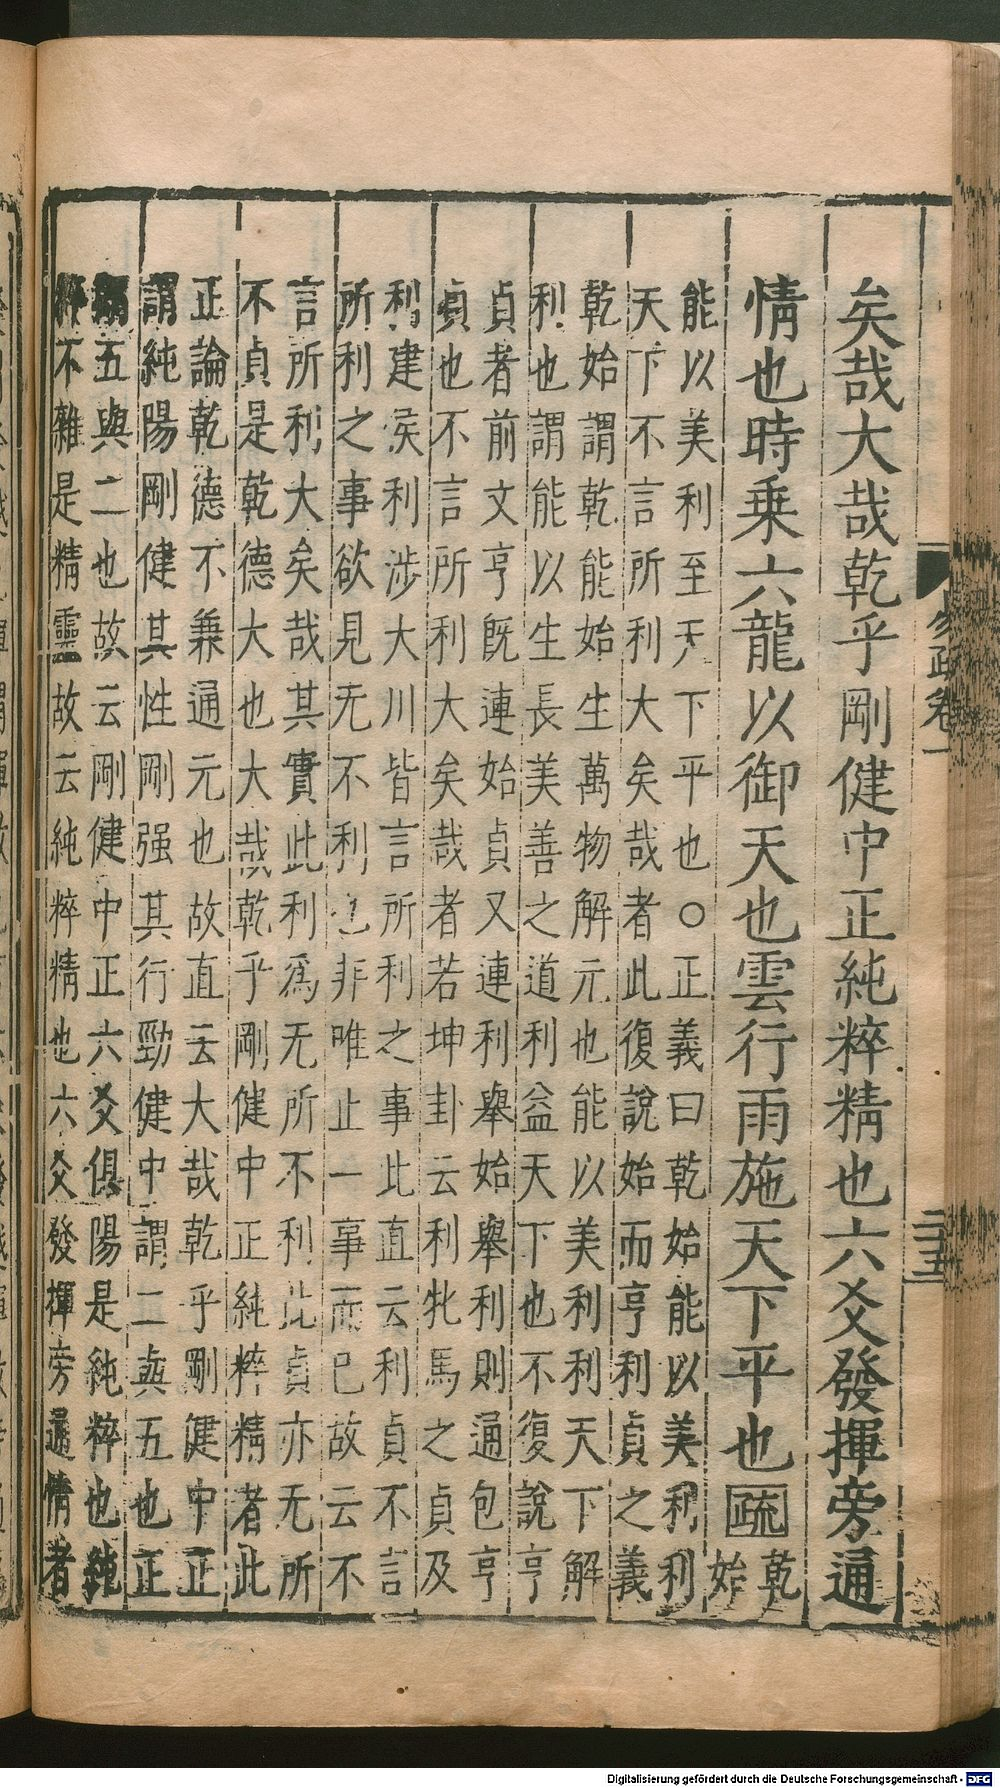 矣哉大哉乾乎剛健中正純粹精也六爻發揮旁通
情也時乗六龍以御天也雲行雨施天下平也疏乾
始
能以美利至天下平也○正義曰乾始能以美利利
天下不言所利大矣哉者此復說始而亨利貞之義
乾始謂乾能始生萬物解元也能以美利利天下解
利也謂能以生長美善之道利益天下也不復說亨
貞者前文亨既連始貞又連利舉始舉利則通包亨
貞也不言所利大矣哉者若坤卦云利牝馬之貞及
利建侯利涉大川皆言所利之事此直云利貞不言
所利之事欲見无不利也非唯止一事而已故云不
言所利大矣哉其實此利為无所不利此貞亦无所
不貞是乾德大也大哉乾乎剛健中正純粹精者此
正論乾德不兼通元也故直云大哉乾乎剛健中正
謂純陽剛健其性剛强其行勁健中謂二與五也正
謂五與二也故云剛健中正六爻俱陽是純粹也純
粹不雜是精靈故云純粹精也六爻發揮旁通情者
易疏卷一
二十五
Digitalisierung gefördert durch die Deutsche Forschungsgemeinschaft - DFG